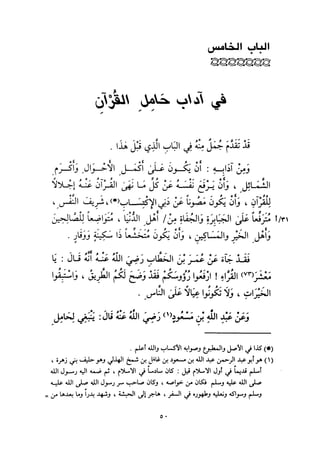 الباب الخامس
في آداب حَامِلِ القُرْآنِ
قَدْ تَقَدَّمَ جُمَلٌ مِنْهُ في البَابِ الَّذِي قَبْلَ هَذَا .
وَمِنْ آدَابِهِ : أَنْ يَكُونَ عَلَى أَكْمَلِ الأَحْوَالِ ، وَأَكْرَمِ
الشَّمَائِلِ ، وَأَنْ يَرْفَعَ نَفْسَهُ عَنْ كُلِّ مَا نَهَى القُرْآنُ عَنْهُ إِجْلَالاً
لِلْقُرْآنِ ، وَأَنْ يَكُونَ مَصُوناً عَنْ دَنِيِّ الإِكْتِسَابِ(*) ، شَرِيفَ النَّفْسِ ،
١/٣١ مُتَرَفِّعاً عَلَى الجَبَابِرَةِ وَالجُفَاةِ مِنْ/ أَهْلِ الدُّنْيَا ، مُتَوَاضِعاً لِلصَّالِحِينَ
وَأَهْلِ الخَيْرِ وَالمَسَاكِينِ ، وَأَنْ يَكُونَ مُتَخَشِّعاً ذَا سَكِينَةٍ وَوَقَارٍ .
فَقَدْ جَاءَ عَنْ عُمَرَ بْنِ الخَطَّابِ رَضِيَ اللهُ عَنْهُ أَنَّهُ قَالَ : يَا
مَعْشَرَ(٧٣) القُرَّاءِ ! ارْفَعُوا رُؤُوسَكُمْ فَقَدْ وَضَحَ لَكُمُ الطَّرِيقُ ، وَاسْتَبِقُوا
الخَيْرَاتِ ، وَلَا تَكُونُوا عِيَالاً عَلَى النَّاسِ .
وَعَنْ عَبْدِ اللهِ بْنِ مَسْعُودٍ(١) رَضِيَ اللهُ عَنْهُ قَالَ: يَنْبَغِي لِحَامِلِ
(*) كذا في الأصل والمطبوع وصوابه الاكتساب والله أعلم .
(١) هو أبو عبد الرحمن عبد الله بن مسعود بن غافل بن شمخ الهذلي وهو حليف بني زهرة ،
أسلم قديماً في أول الاسلام قيل : كان سادساً في الاسلام ، ثم ضمه اليه رسول الله
صلى الله عليه وسلم فكان من خواصه ، وكان صاحب سر رسول الله صلى الله عليه
وسلم وسواكه ونعليه وطهوره في السفر ، هاجر إلى الحبشة ، وشهد بدراً وما بعدها من =
٥٠